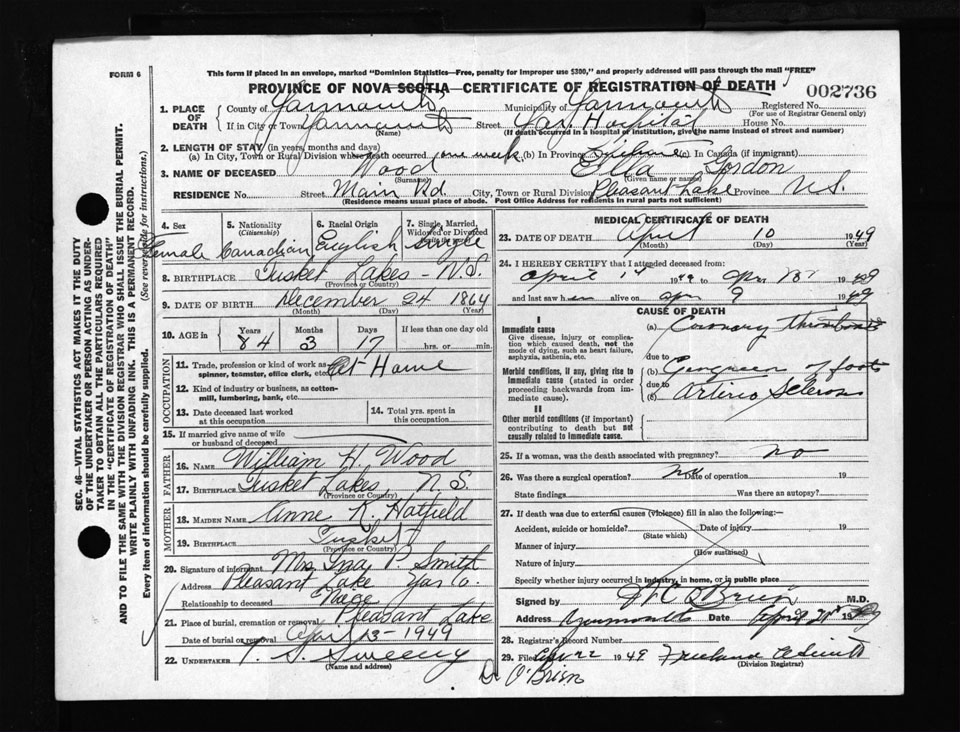 FORM 6
This form if placed in an envelope, marked "Dominion Statistics—Free, penalty for improper use $300," and properly addressed will pass through the mail "FREE"
PROVINCE OF NOVA SCOTIA—CERTIFICATE OF REGISTRATION OF DEATH
002736
1. PLACE OF DEATH
County of Yarmouth Municipality of Yarmouth Registered No.
(For use of Registrar General only)
If in City or Town Yarmouth Street Yar. Hospital House No.
(Name) (If death occurred in a hospital or institution, give the name instead of street and number)
2. LENGTH OF STAY (in years, months and days)
(a) In City, Town or Rural Division where death occurred one week (b) In Province Lifetime (c) In Canada (if immigrant)
3. NAME OF DECEASED Wood Ella Gordon
(Surname) (Given name or names)
RESIDENCE No. Street Main Rd City, Town or Rural Division Pleasant Lake Province N.S.
(Residence means usual place of abode. Post Office Address for residents in rural parts not sufficient)
SEC. 46—VITAL STATISTICS ACT MAKES IT THE DUTY
OF THE UNDERTAKER OR PERSON ACTING AS UNDER-
TAKER TO OBTAIN ALL THE PARTICULARS REQUIRED
IN THE "CERTIFICATE OF REGISTRATION OF DEATH"
AND TO FILE THE SAME WITH THE DIVISION REGISTRAR WHO SHALL ISSUE THE BURIAL PERMIT.
WRITE PLAINLY WITH UNFADING INK. THIS IS A PERMANENT RECORD.
Every item of information should be carefully supplied. (See reverse side for instructions.)
4. Sex 5. Nationality (Citizenship) 6. Racial Origin 7. Single, Married, Widowed or Divorced
Female Canadian English Single
8. BIRTHPLACE Tusket Lakes - N.S.
(Province or Country)
9. DATE OF BIRTH December 24 1864
(Month) (Day) (Year)
10. AGE in Years Months Days If less than one day old
84 3 17 hrs. or min.
OCCUPATION
11. Trade, profession or kind of work as spinner, teamster, office clerk, etc. At Home
12. Kind of industry or business, as cotton-mill, lumbering, bank, etc.
13. Date deceased last worked at this occupation
14. Total yrs. spent in this occupation
15. If married give name of wife or husband of deceased
FATHER
16. NAME William H. Wood
17. BIRTHPLACE Tusket Lakes N.S.
(Province or Country)
MOTHER
18. MAIDEN NAME Anne R. Hatfield
19. BIRTHPLACE Tusket
(Province or Country)
20. Signature of informant Mrs Ina P. Smith
Address Pleasant Lake Yar Co.
Relationship to deceased Niece
21. Place of burial, cremation or removal Pleasant Lake
Date of burial or removal Apr 13 - 1949
22. UNDERTAKER V. S. Sweeny
(Name and address)
MEDICAL CERTIFICATE OF DEATH
23. DATE OF DEATH April 10 1949
(Month) (Day) (Year)
24. I HEREBY CERTIFY that I attended deceased from:
April 1st 1949 to Apr 1949
and last saw her alive on Apr 9 1949
CAUSE OF DEATH
I
Immediate cause
Give disease, injury or complication which caused death, not the mode of dying, such as heart failure, asphyxia, asthenia, etc.
(a) Coronary thrombosis
due to
Morbid conditions, if any, giving rise to immediate cause (stated in order proceeding backwards from immediate cause).
(b) Gangreen of foot
due to
(c) Arterio Sclerosis
II
Other morbid conditions (if important) contributing to death but not causally related to immediate cause.
25. If a woman, was the death associated with pregnancy? No
26. Was there a surgical operation? No Date of operation 19
State findings Was there an autopsy?
27. If death was due to external causes (violence) fill in also the following:—
Accident, suicide or homicide? Date of injury 19
(State which)
Manner of injury
(How sustained)
Nature of injury
Specify whether injury occurred in industry, in home, or in public place
Signed by O'Brien M.D.
Address Yarmouth Date April 21st 1949
28. Registrar's Record Number
29. Filed Apr 22 1949
(Division Registrar)
Dr O'Brien